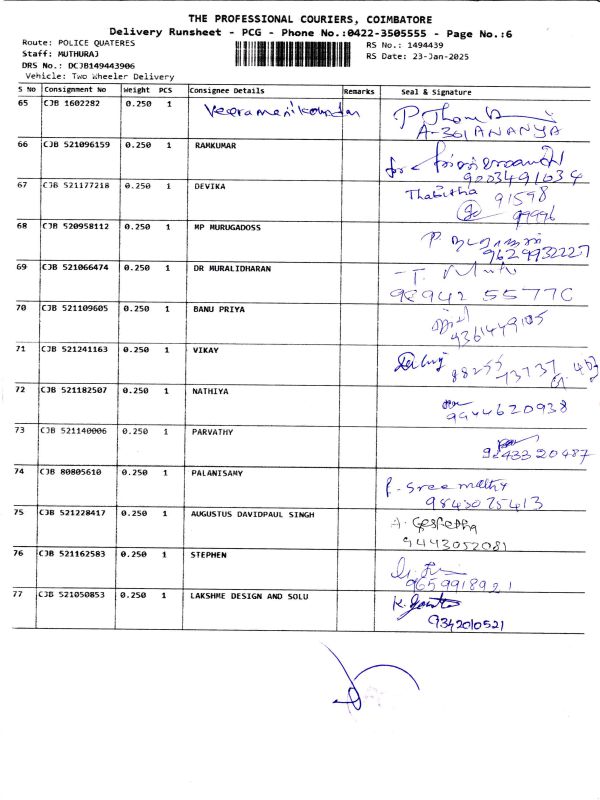 THE PROFESSIONAL COURIERS, COIMBATORE
Delivery Runsheet - PCG - Phone No.:0422-3505555 - Page No.:6
Route: POLICE QUATERES
RS No.: 1494439
Staff: MUTHURAJ
RS Date: 23-Jan-2025
DRS No.: DCJB149443906
Vehicle: Two Wheeler Delivery
S No Consignment No Weight PCS Consignee Details Remarks Seal & Signature
65 CJB 1602282 0.250 1 Veeramanikandan
A-301 ANANYA
66 CJB 521096159 0.250 1 RAMKUMAR
for
9003491634
67 CJB 521177218 0.250 1 DEVIKA Thabitha 91598
99996
68 CJB 520958112 0.250 1 MP MURUGADOSS
9629932227
69 CJB 521066474 0.250 1 DR MURALIDHARAN T.
98942 55770
70 CJB 521109605 0.250 1 BANU PRIYA
9361449105
71 CJB 521241163 0.250 1 VIKAY
88255 73737
72 CJB 521182507 0.250 1 NATHIYA
9944620938
73 CJB 521140006 0.250 1 PARVATHY
9843320487
74 CJB 80805610 0.250 1 PALANISAMY
P. Sree mathy
9843025413
75 CJB 521228417 0.250 1 AUGUSTUS DAVIDPAUL SINGH A.
9443052081
76 CJB 521162583 0.250 1 STEPHEN
9659918921
77 CJB 521050853 0.250 1 LAKSHME DESIGN AND SOLU K.
9342010521